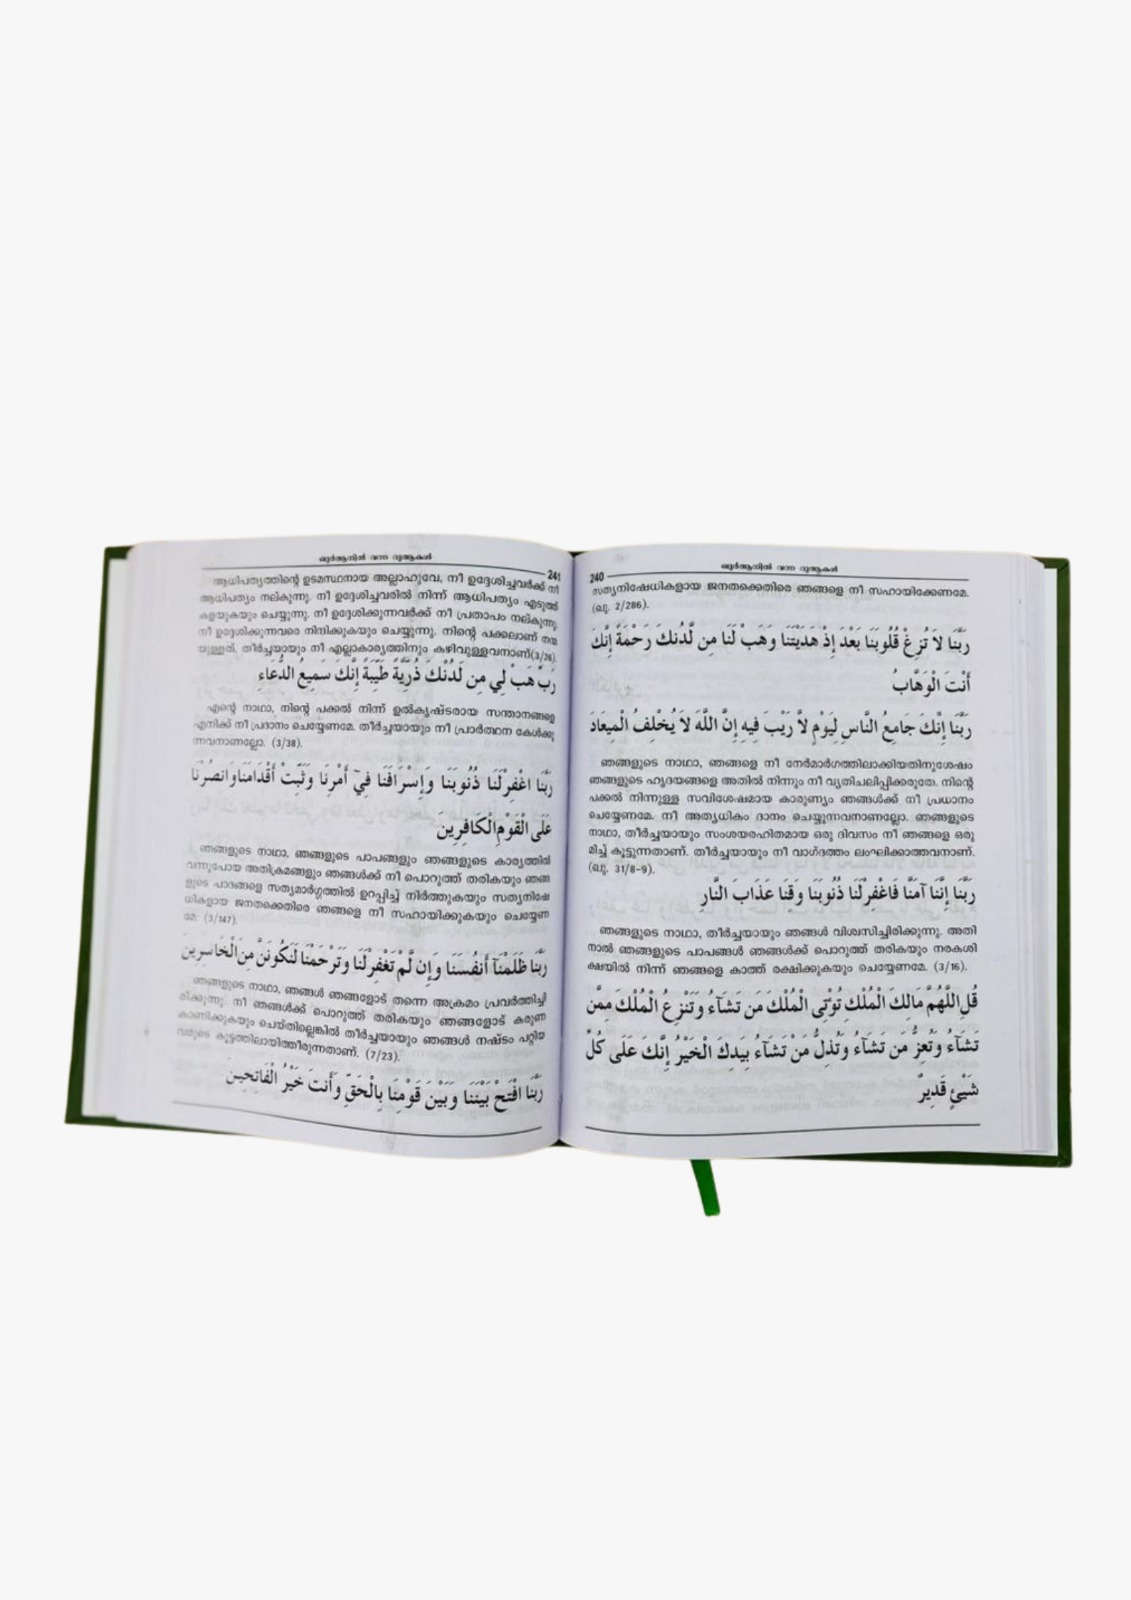 ഖുർആനിൽ വന്ന ദുആകൾ
240
സത്യനിഷേധികളായ ജനതക്കെതിരെ ഞങ്ങളെ നീ സഹായിക്കേണമേ.
(ഖു. 2/286).
رَبَّنَا لاَ تُزِغْ قُلُوبَنَا بَعْدَ إِذْ هَدَيْتَنَا وَهَبْ لَنَا مِن لَّدُنكَ رَحْمَةً إِنَّكَ
أَنْتَ الْوَهَّابُ
رَبَّنَا إِنَّكَ جَامِعُ النَّاسِ لِيَوْمٍ لاَّ رَيْبَ فِيهِ إِنَّ اللَّهَ لاَ يُخْلِفُ الْمِيعَادَ
ഞങ്ങളുടെ നാഥാ, ഞങ്ങളെ നീ നേർമാർഗത്തിലാക്കിയതിനുശേഷം
ഞങ്ങളുടെ ഹൃദയങ്ങളെ അതിൽ നിന്നും നീ വ്യതിചലിപ്പിക്കരുതേ. നിന്റെ
പക്കൽ നിന്നുള്ള സവിശേഷമായ കാരുണ്യം ഞങ്ങൾക്ക് നീ പ്രധാനം
ചെയ്യേണമേ. നീ അത്യധികം ദാനം ചെയ്യുന്നവനാണല്ലോ. ഞങ്ങളുടെ
നാഥാ, തീർച്ചയായും സംശയരഹിതമായ ഒരു ദിവസം നീ ഞങ്ങളെ ഒരു
മിച്ച് കൂട്ടുന്നതാണ്. തീർച്ചയായും നീ വാഗ്ദത്തം ലംഘിക്കാത്തവനാണ്.
(ഖു. 31/8-9).
رَبَّنَا إِنَّنَا آمَنَّا فَاغْفِرْلَنَا ذُنُوبَنَا وَقِنَا عَذَابَ النَّارِ
ഞങ്ങളുടെ നാഥാ, തീർച്ചയായും ഞങ്ങൾ വിശ്വസിച്ചിരിക്കുന്നു. അതി
നാൽ ഞങ്ങളുടെ പാപങ്ങൾ ഞങ്ങൾക്ക് പൊറുത്ത് തരികയും നരകശി
ക്ഷയിൽ നിന്ന് ഞങ്ങളെ കാത്ത് രക്ഷിക്കുകയും ചെയ്യേണമേ. (3/16).
قُلِ اللَّهُمَّ مَالِكَ الْمُلْكِ تُؤْتِي الْمُلْكَ مَن تَشَآءُ وَتَنْزِعُ الْمُلْكَ مِمَّن
تَشَآءُ وَتُعِزُّ مَن تَشَآءُ وَتُذِلُّ مَنْ تَشَآءُ بِيَدِكَ الْخَيْرُ إِنَّكَ عَلَى كُلِّ
شَيْئٍ قَدِيرٌ
ഖുർആനിൽ വന്ന ദുആകൾ
241
ആധിപത്യത്തിന്റെ ഉടമസ്ഥനായ അല്ലാഹുവേ, നീ ഉദ്ദേശിച്ചവർക്ക് നീ
ആധിപത്യം നല്കുന്നു. നീ ഉദ്ദേശിച്ചവരിൽ നിന്ന് ആധിപത്യം എടുത്ത്
കളയുകയും ചെയ്യുന്നു. നീ ഉദ്ദേശിക്കുന്നവർക്ക് നീ പ്രതാപം നല്കുന്നു
നീ ഉദ്ദേശിക്കുന്നവരെ നിന്ദിക്കുകയും ചെയ്യുന്നു. നിന്റെ പക്കലാണ് നന്മ
യുള്ളത്. തീർച്ചയായും നീ എല്ലാകാര്യത്തിനും കഴിവുള്ളവനാണ്(3/26).
رَبِّ هَبْ لِي مِن لَدُنْكَ ذُرِّيَّةً طَيِّبَةً إِنَّكَ سَمِيعُ الدُّعَاءِ
എന്റെ നാഥാ, നിന്റെ പക്കൽ നിന്ന് ഉൽകൃഷ്ടരായ സന്താനങ്ങളെ
എനിക്ക് നീ പ്രദാനം ചെയ്യേണമേ. തീർച്ചയായും നീ പ്രാർത്ഥന കേൾക്കു
ന്നവനാണല്ലോ. (3/38).
رَبَّنَا اغْفِرْلَنَا ذُنُوبَنَا وَإِسْرَافَنَا فِيَ أَمْرِنَا وَثَبِّتْ أَقْدَامَنَا وَانصُرْنَا
عَلَى الْقَوْمِ الْكَافِرِينَ
ഞങ്ങളുടെ നാഥാ, ഞങ്ങളുടെ പാപങ്ങളും ഞങ്ങളുടെ കാര്യത്തിൽ
വന്നുപോയ അതിക്രമങ്ങളും ഞങ്ങൾക്ക് നീ പൊറുത്ത് തരികയും ഞങ്ങ
ളുടെ പാദങ്ങളെ സത്യമാർഗ്ഗത്തിൽ ഉറപ്പിച്ച് നിർത്തുകയും സത്യനിഷേ
ധികളായ ജനതക്കെതിരെ ഞങ്ങളെ നീ സഹായിക്കുകയും ചെയ്യേണ
മേ. (3/147).
رَبَّنَا ظَلَمْنَآ أَنفُسَنَا وَإِن لَّمْ تَغْفِرْلَنَا وَتَرْحَمْنَا لَنَكُونَنَّ مِنَ الْخَاسِرِينَ
ഞങ്ങളുടെ നാഥാ, ഞങ്ങൾ ഞങ്ങളോട് തന്നെ അക്രമം പ്രവർത്തിച്ചി
രിക്കുന്നു. നീ ഞങ്ങൾക്ക് പൊറുത്ത് തരികയും ഞങ്ങളോട് കരുണ
കാണിക്കുകയും ചെയ്തില്ലെങ്കിൽ തീർച്ചയായും ഞങ്ങൾ നഷ്ടം പറ്റിയ
വരുടെ കൂട്ടത്തിലായിത്തീരുന്നതാണ്. (7/23).
رَبَّنَا افْتَحْ بَيْنَنَا وَبَيْنَ قَوْمِنَا بِالْحَقِّ وَأَنتَ خَيْرُ الْفَاتِحِينَ